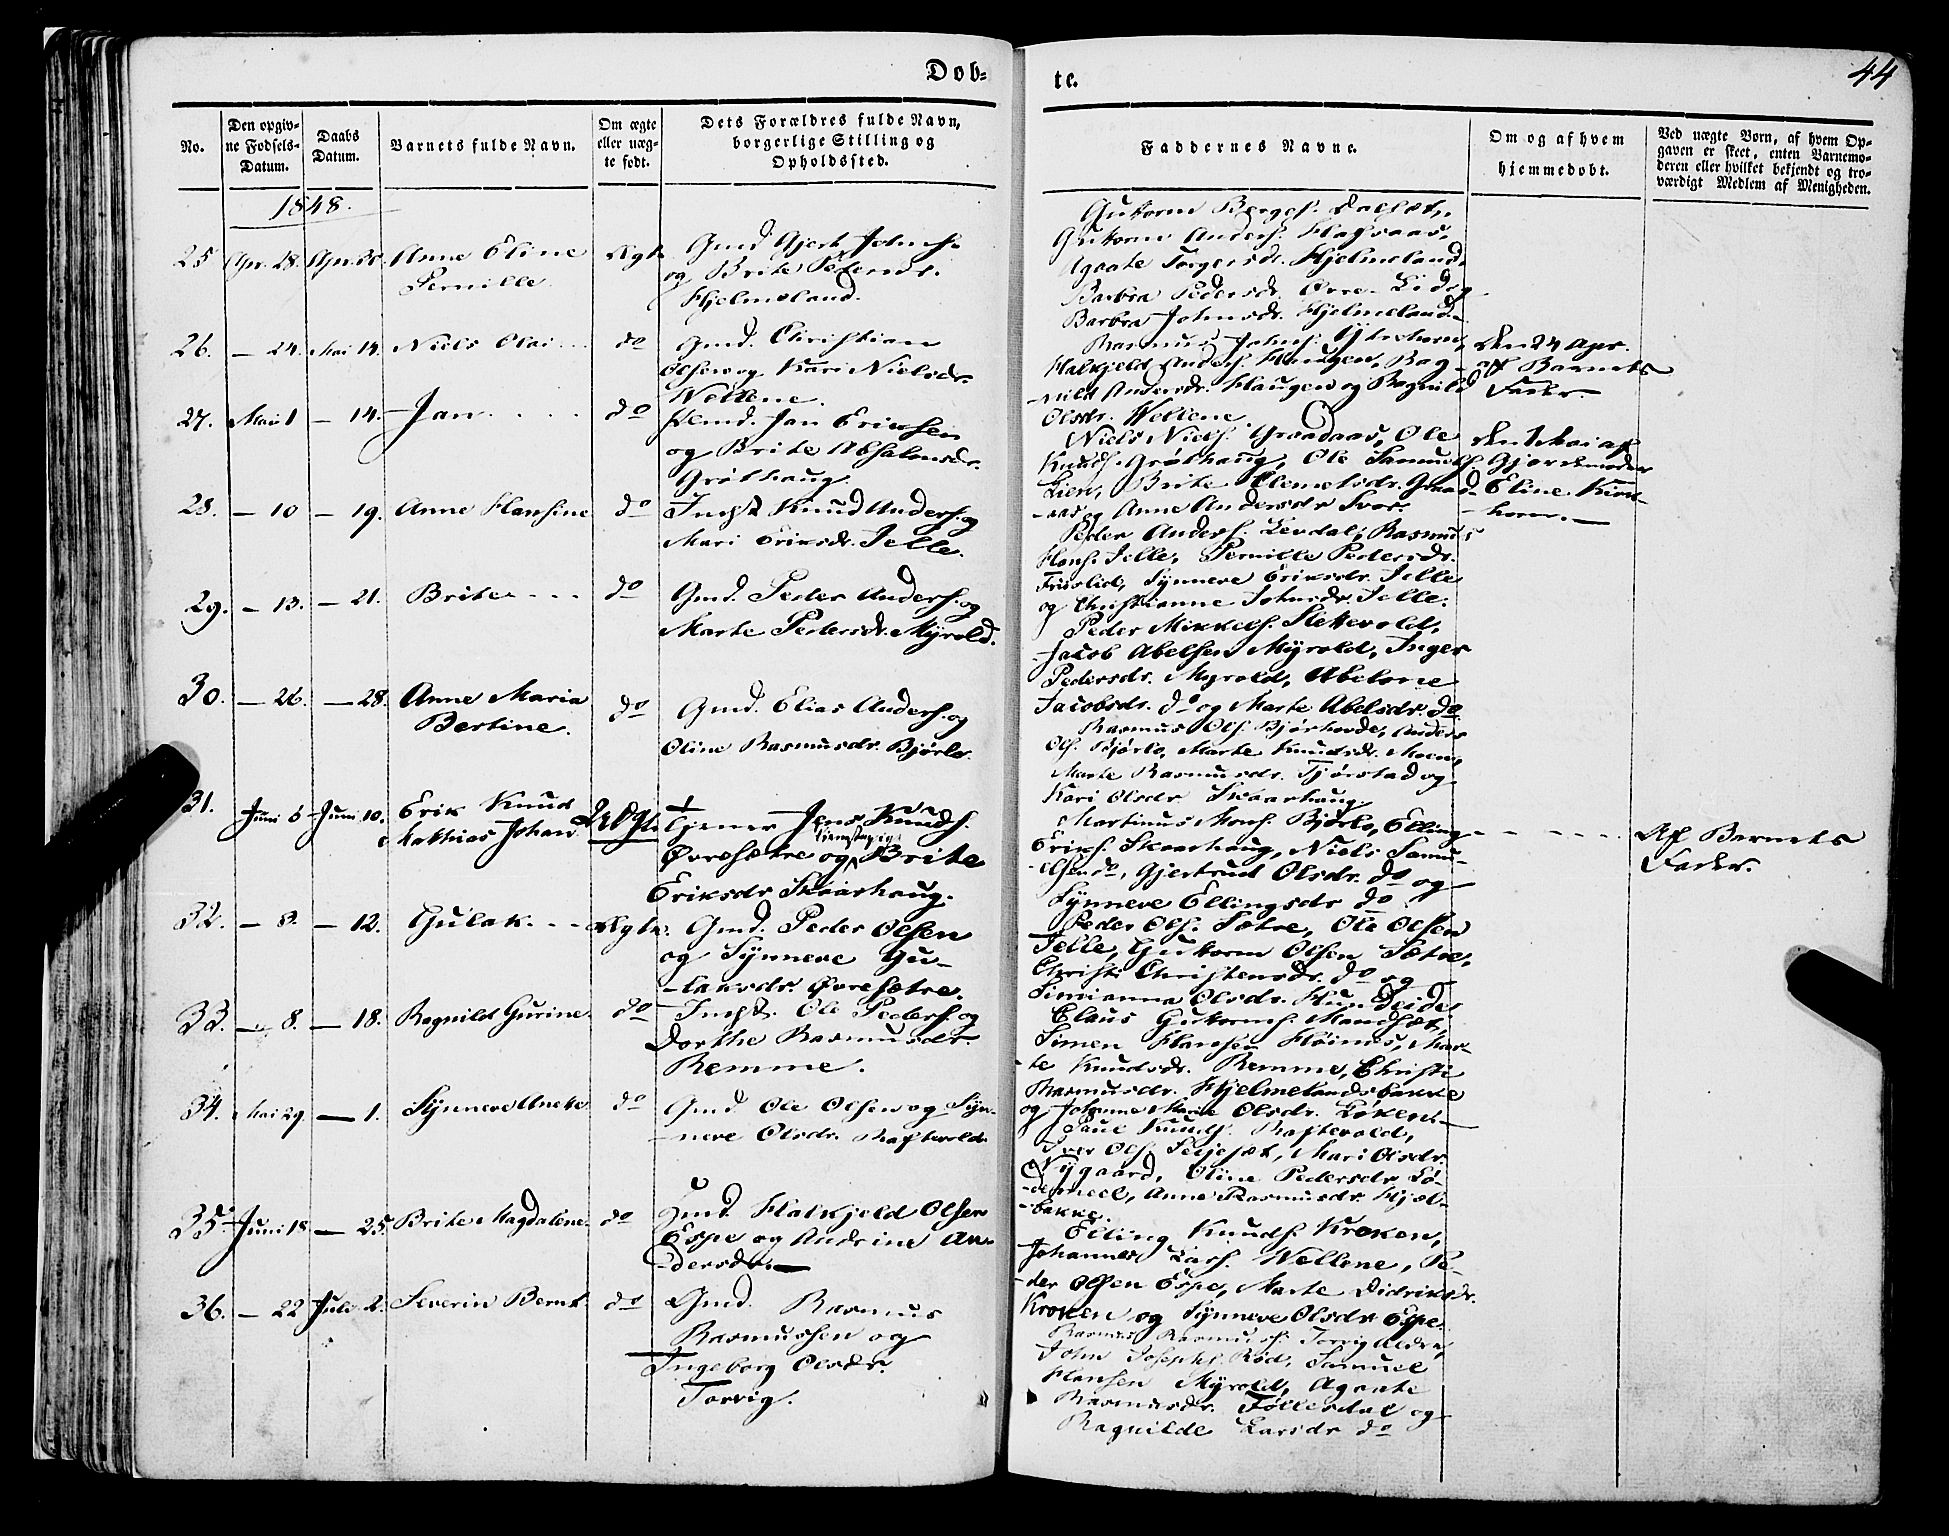 Døb-
te.
44
No.
Den opgiv-
ne Fødsels-
Datum.
Daabs
Datum.
Barnets fulde Navn.
Om ægte
eller uæg-
te født.
Dets Forældres fulde Navn,
borgerlige Stilling og
Opholdssted.
Faddernes Navne.
Om og af hvem
hjemmedøbt.
Ved uægte Børn, af hvem Op-
gaven er skeet, enten Barnemo-
deren eller hvilket bekjendt og tro-
værdigt Medlem af Menigheden.
1848.
25 Apr. 28. Apr. 30. Anne Eline
Pernille
Ægte
Gmd. Gjert Johns.
og Brite Pedersdr.
Hjelmeland.
Guttorm Børges. Dalsæt,
Guttorm Anders.
Agaate Torgersdr. Hjelmeland
Barbra Pedersdr. Øvre-Lid og
Barbra Johnsdr. Hjelmeland
26. - 24. Mai 14. Niels Olai
do
Gmd. Christian
Olsen og Kari Nielsdr.
Wellene.
Rasmus Johns. Ytrehorn,
Halkjeld Anders. Haugen, Rag-
nild Andersdr. Haugen og Ragnild
Olsdr. Wellene
den 24 Apr.
af Barnets
Fader.
27. Mai 1 - 14. Jan
do
Huusmd. Jan Eriksen
og Brite Absalonsdr.
Grøthaug.
Niels Niels. Graadaas, Ole
Knuds. Grøthaug, Ole Samuels.
Lien, Brite Clemetsdr. Graad-
aas og Anne Andersdr Svor.
den 1 Mai af
Gjordemoder
Eline Kirk-
horn.
28. - 10 - 19. Anne Hansine
do
Indst. Knud Anders. og
Mari Eriksdr. Jelle.
Peder Anders. Levdal, Rasmus
Hans. Jelle, Pernille Pedersdr.
Frislid, Synneve Eriksdr. Jelle
og Christianne Johnsdr. Jelle.
29. - 13. - 21. Brite
do
Gmd. Peder Anders. og
Marte Pedersdr. Myrold.
Peder Mikkels. Slettevold,
Jacob Abelsen Myrold, Inger
Pedersdr. Myrold, Abelone
Jacobsdr. do og Marte Abelsdr. do
30. - 26. - 28. Anne Maria
Bertine.
do
Gmd. Elias Anders. og
Oline Rasmusdr. Bjørlo.
Rasmus Ols. Bjørhovde, Anders
Ols. Bjørlo, Marte Knudsdr. Moen,
Marte Rasmusdr. Tjørstad og
Kari Olsdr. Skaarhaug.
31. Juni 5 Juni 10. Erik Knud
Mathias Johan
Uægte
tjener Jens Knuds.
Øvresætre og Tjenestepige Brite
Eriksdr Skaarhaug.
Martinus Mons. Bjørlo, Elling
Eriks. Skaarhaug, Niels Samu-
elsen do, Gjertrud Olsdr. do og
Synneve Ellingsdr do
Af Barnets
Fader.
32. - 8. - 12. Gulak
Ægte.
Gmd. Peder Olsen
og Synneve Gu-
laksdr. Øvresætre.
Peder Ols. Sætre, Ole Olsen
Jelle, Guttorm Olsen Sætre,
Christi Christensdr. do og
Simianna Olsdr. Hundeide
33. - 8. - 18. Ragnild Gurine
do
Indst. Ole Peders. og
Dorthe Rasmusdr.
Remme.
Claus Guttorms. Mandsæt,
Simen Hansen Høines, Mar-
te Knudsdr. Remme, Christi
Rasmusdr. Hjelmelandsbakke
og Johanne Marie Olsdr. Løken
34. Mai 29. - 1. Synneve Aneke.
do
Gmd. Ole Olsen og Syn-
neve Olsdr. Raftevold.
Paul Knuds. Raftevold,
Iver Ols. Seljeset, Mari Olsdr
Nygaard, Oline Pedersdr Lø-
demeel, Anne Rasmusdr. Hjel-
bakke.
35 Juni 18 - 25. Brite Magdalene
do
Gmd. Halkjeld Olsen
Espe og Andrine An-
dersdr.
Elling Knuds. Kroken,
Johannes Lars. Wellene, Pe-
der Olsen Espe, Marte Didriksdr.
Kroken og Synneve Olsdr Espe.
36. - 22 Juli 2. Severin Bernt
do
Gmd. Rasmus
Rasmussen og
Ingeborg Olsdr.
Torvig.
Rasmus Rasmus. Torvig ældre,
John Josephs. Rød, Samuel
Hansen Myrold, Agaate
Rasmusdr. Føllesdal og
Ragnilde Larsdr do